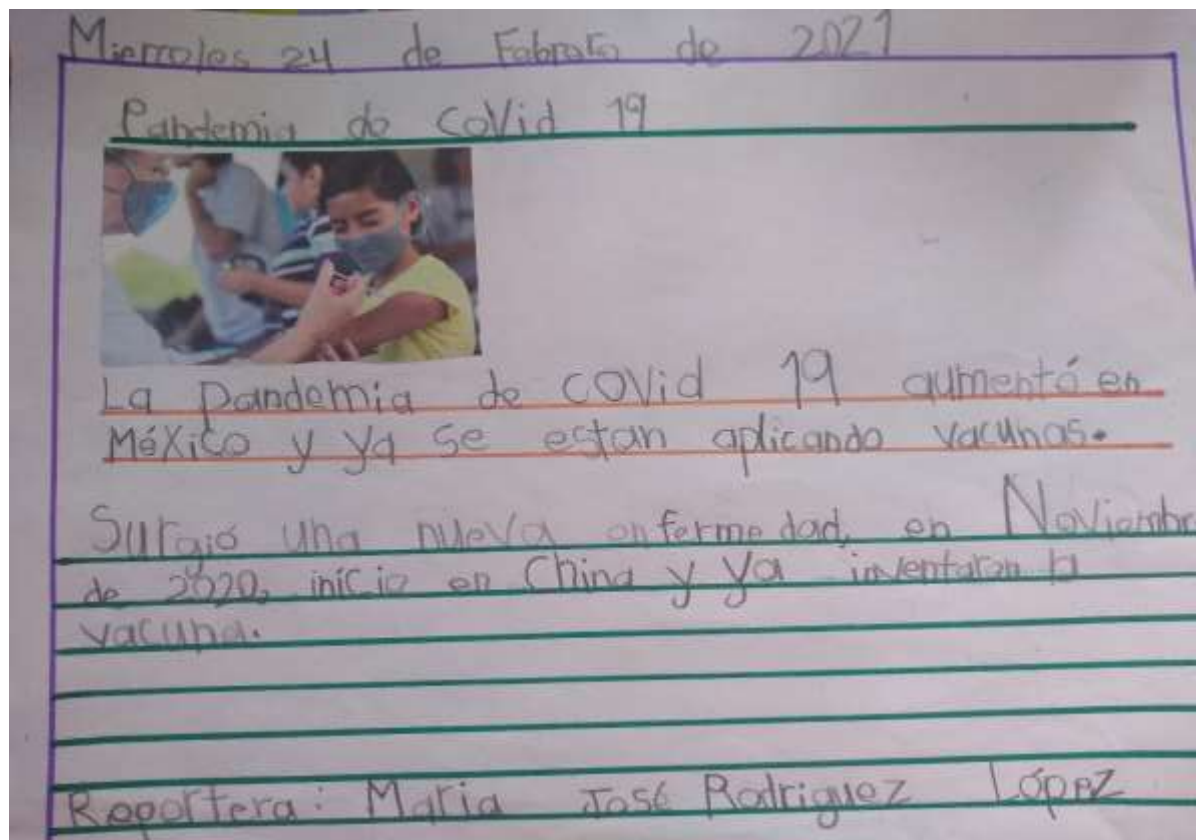 Miercoles 24 de Febrero de 2021
Pandemia de coVid 19
La Pandemia de COVid 19 aumentó en
MéXico y Ya se estan aplicando vacunas.
Surgió una nueva enfermedad, en Noviembre
de 2020, inicio en China y Ya inventaron la
vacuna.
Reportera: Maria José Rodriguez López